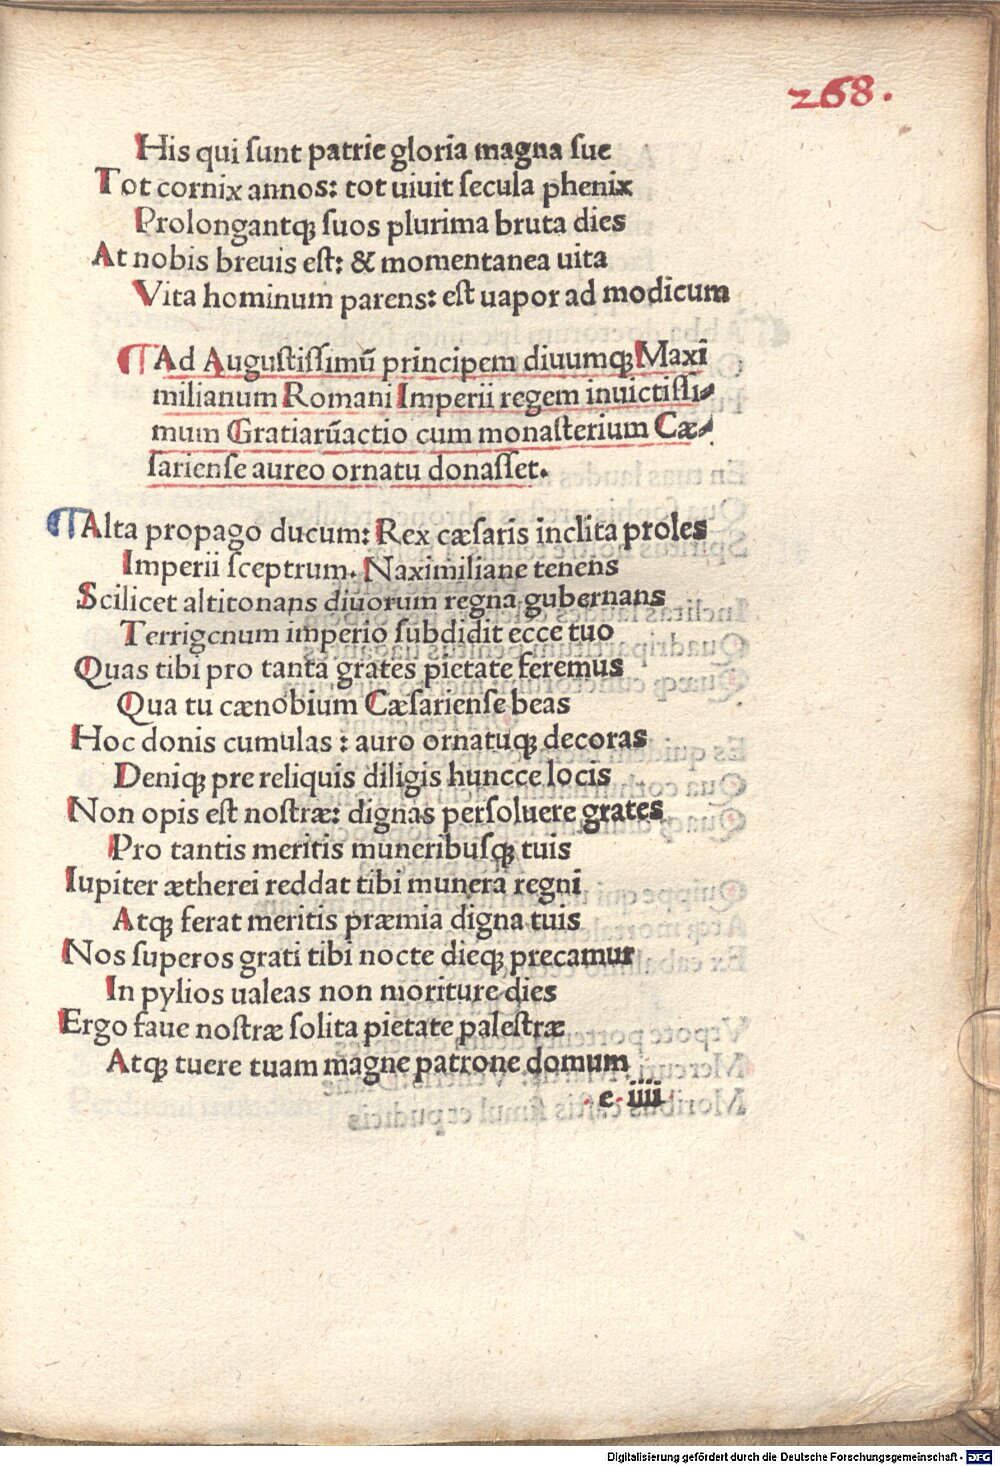 268.
His qui ſunt patrie gloria magna ſue
Tot cornix annos: tot uiuit ſecula phenix
Prolongantqꝫ ſuos plurima bruta dies
At nobis breuis eſt: & momentanea uita
Vita hominum parens: eſt uapor ad modicum
¶Ad Auguſtiſſimū principem diuumqꝫ Maxi
milianum Romani Imperii regem inuictiſſi⸗
mum Gratiarūactio cum monaſterium Cæ⸗
ſarienſe aureo ornatu donaſſet.
¶Alta propago ducum: Rex cæſaris inclita proles
Imperii ſceptrum. Naximiliane tenens
Scilicet altitonans diuorum regna gubernans
Terrigenum imperio ſubdidit ecce tuo
Quas tibi pro tanta grates pietate feremus
Qua tu cænobium Cæſarienſe beas
Hoc donis cumulas: auro ornatuqꝫ decoras
Deniqꝫ pre reliquis diligis huncce locis
Non opis eſt noſtræ: dignas perſoluere grates
Pro tantis meritis muneribuſqꝫ tuis
Iupiter ætherei reddat tibi munera regni
Atqꝫ ferat meritis præmia digna tuis
Nos ſuperos grati tibi nocte dieqꝫ precamur
In pylios ualeas non moriture dies
Ergo faue noſtræ ſolita pietate paleſtræ
Atqꝫ tuere tuam magne patrone domum
e iiii
Digitalisierung gefördert durch die Deutsche Forschungsgemeinschaft - DFG